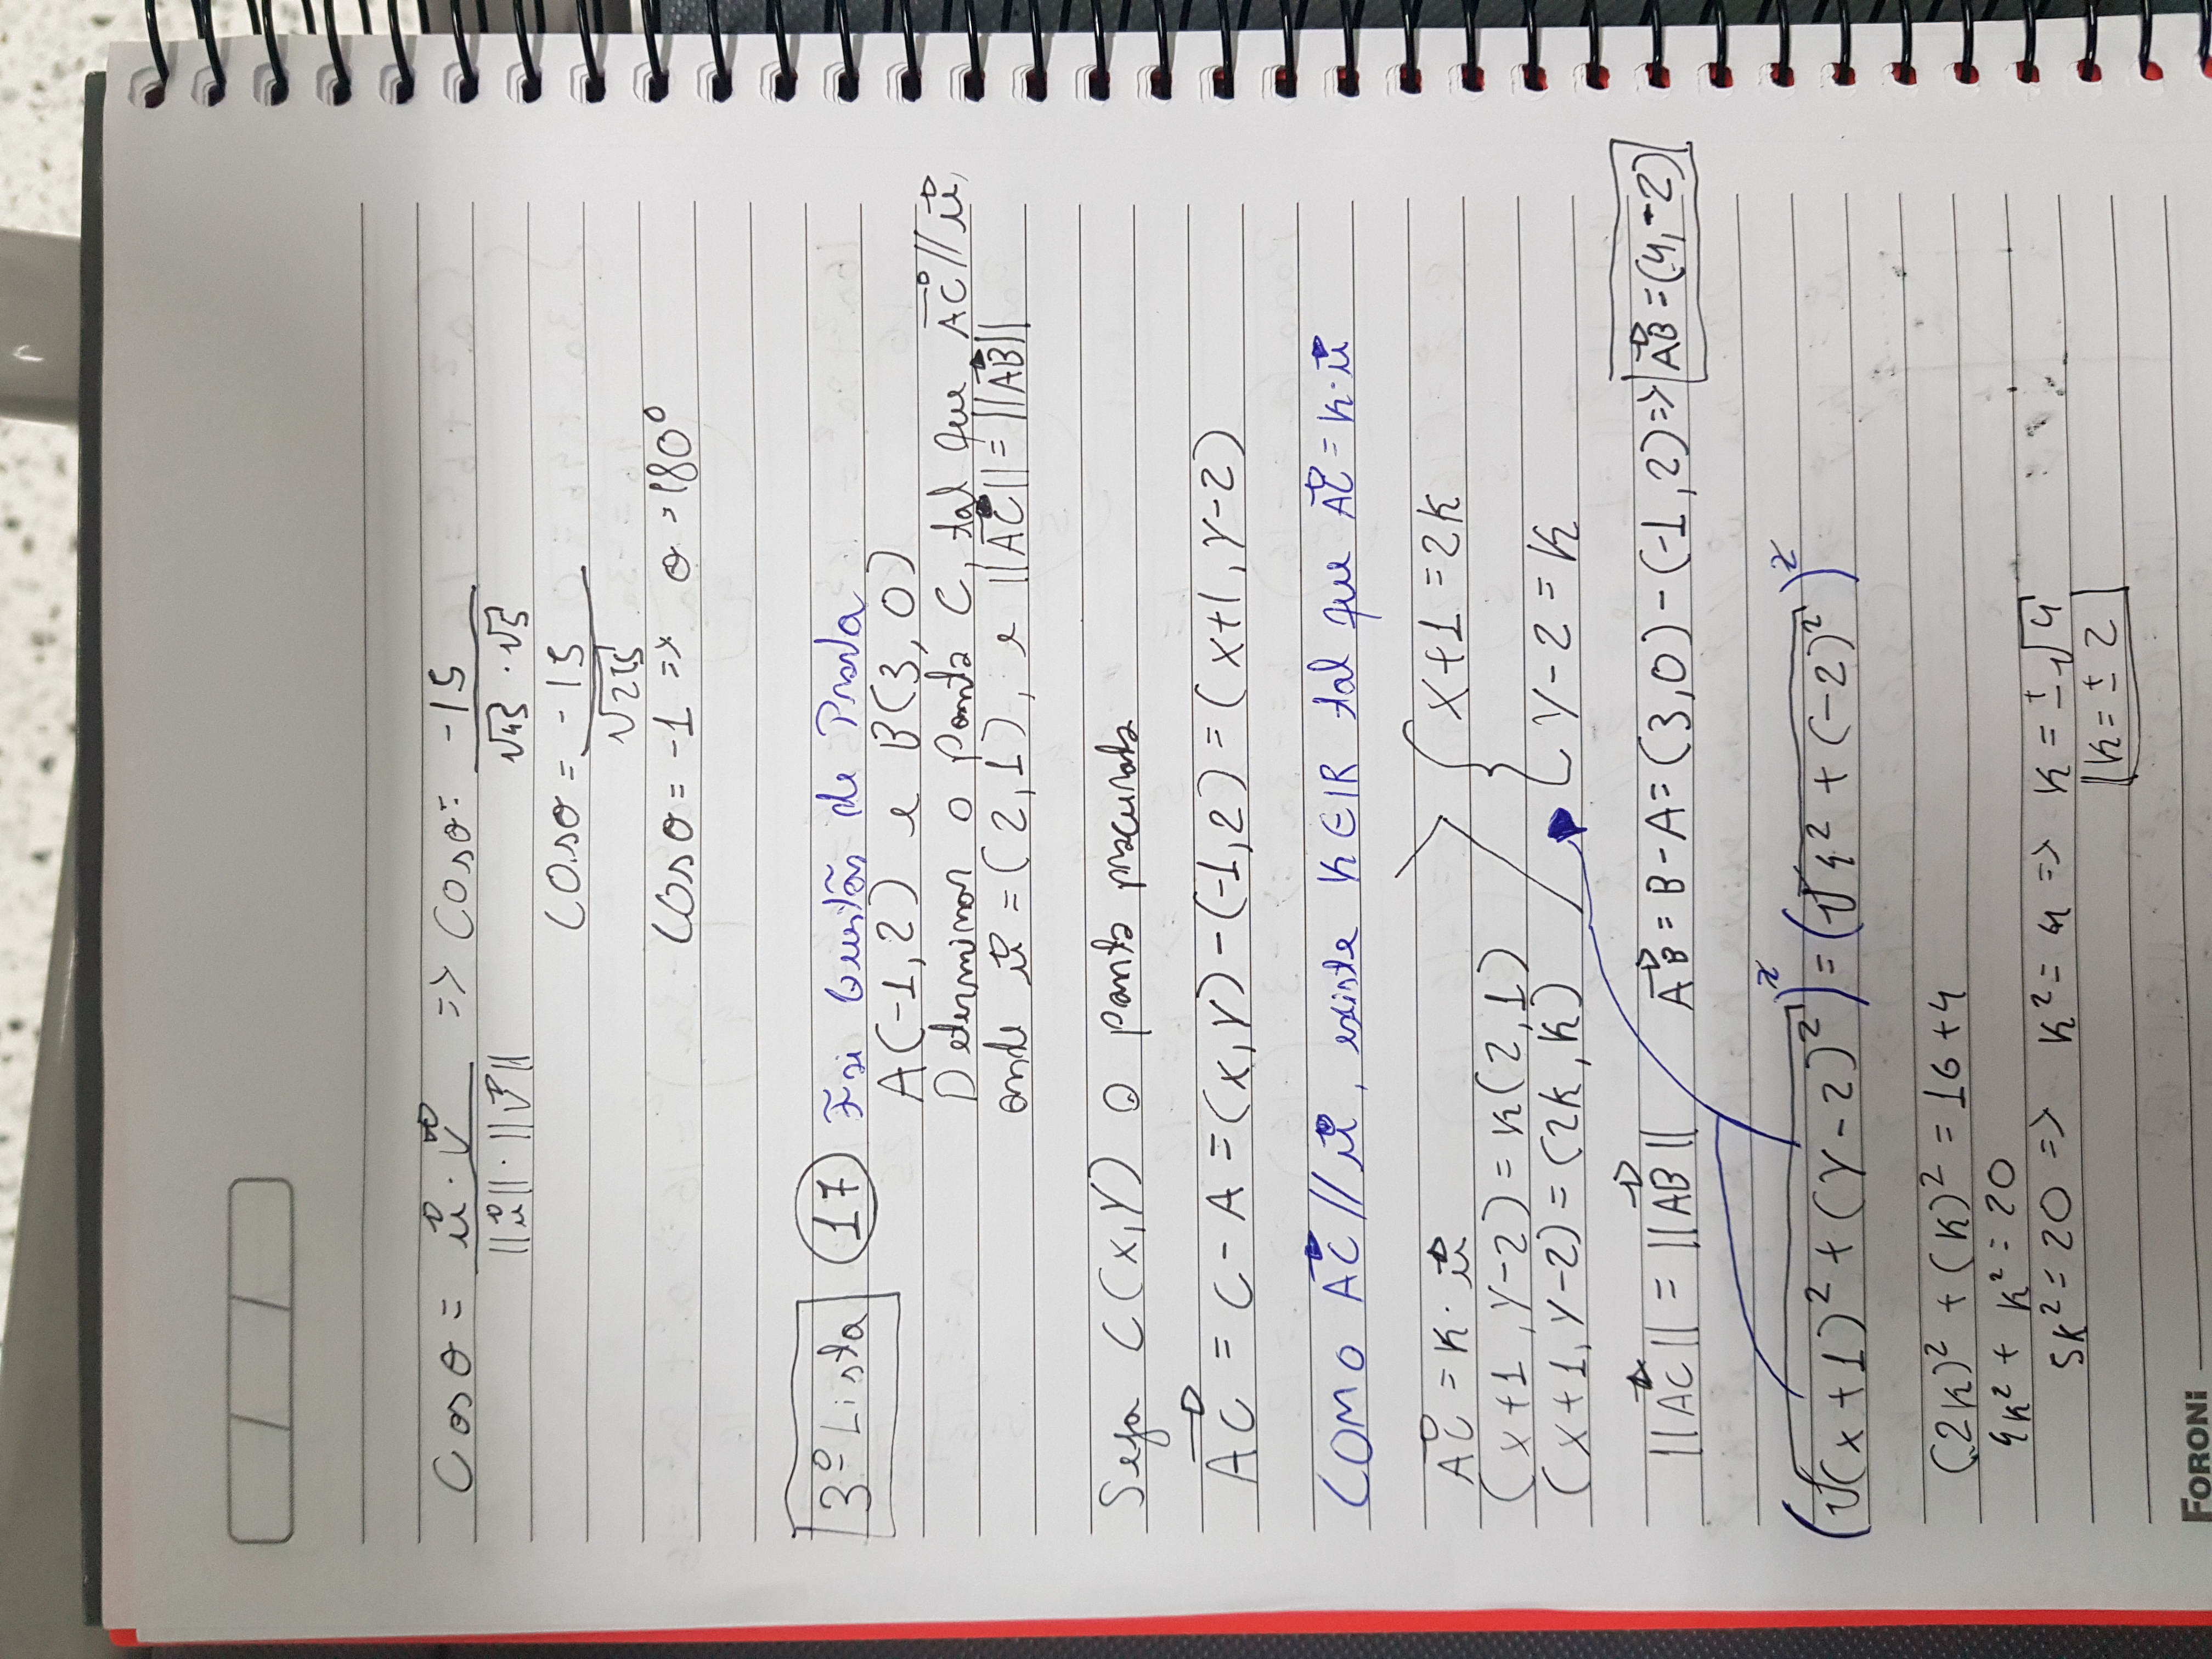 Cosθ = u⃗ · v⃗ / ||u⃗|| · ||v⃗|| => Cosθ = -15 / √45 · √5
Cosθ = -15 / √225
Cosθ = -1 => θ = 180°
3º Lista 17 Foi Questão de Prova
A(-1,2) e B(3,0)
Determinar o ponto C, tal que AC⃗ // u⃗,
onde u⃗ = (2,1), e ||AC⃗|| = ||AB⃗||
Seja C(x,y) o ponto procurado
AC⃗ = C - A = (x,y) - (-1,2) = (x+1, y-2)
COMO AC⃗ // u⃗, existe K ∈ IR tal que AC⃗ = K · u⃗
AC⃗ = K · u⃗
(x+1, y-2) = K(2,1)
(x+1, y-2) = (2K, K)
{ x+1 = 2K
y-2 = K
||AC⃗|| = ||AB⃗|| AB⃗ = B - A = (3,0) - (-1,2) => AB⃗ = (4,-2)
(√(x+1)² + (y-2)²)² = (√4² + (-2)²)²
(2K)² + (K)² = 16 + 4
4K² + K² = 20
5K² = 20 => K² = 4 => K = ±√4
K = ± 2
FORONI